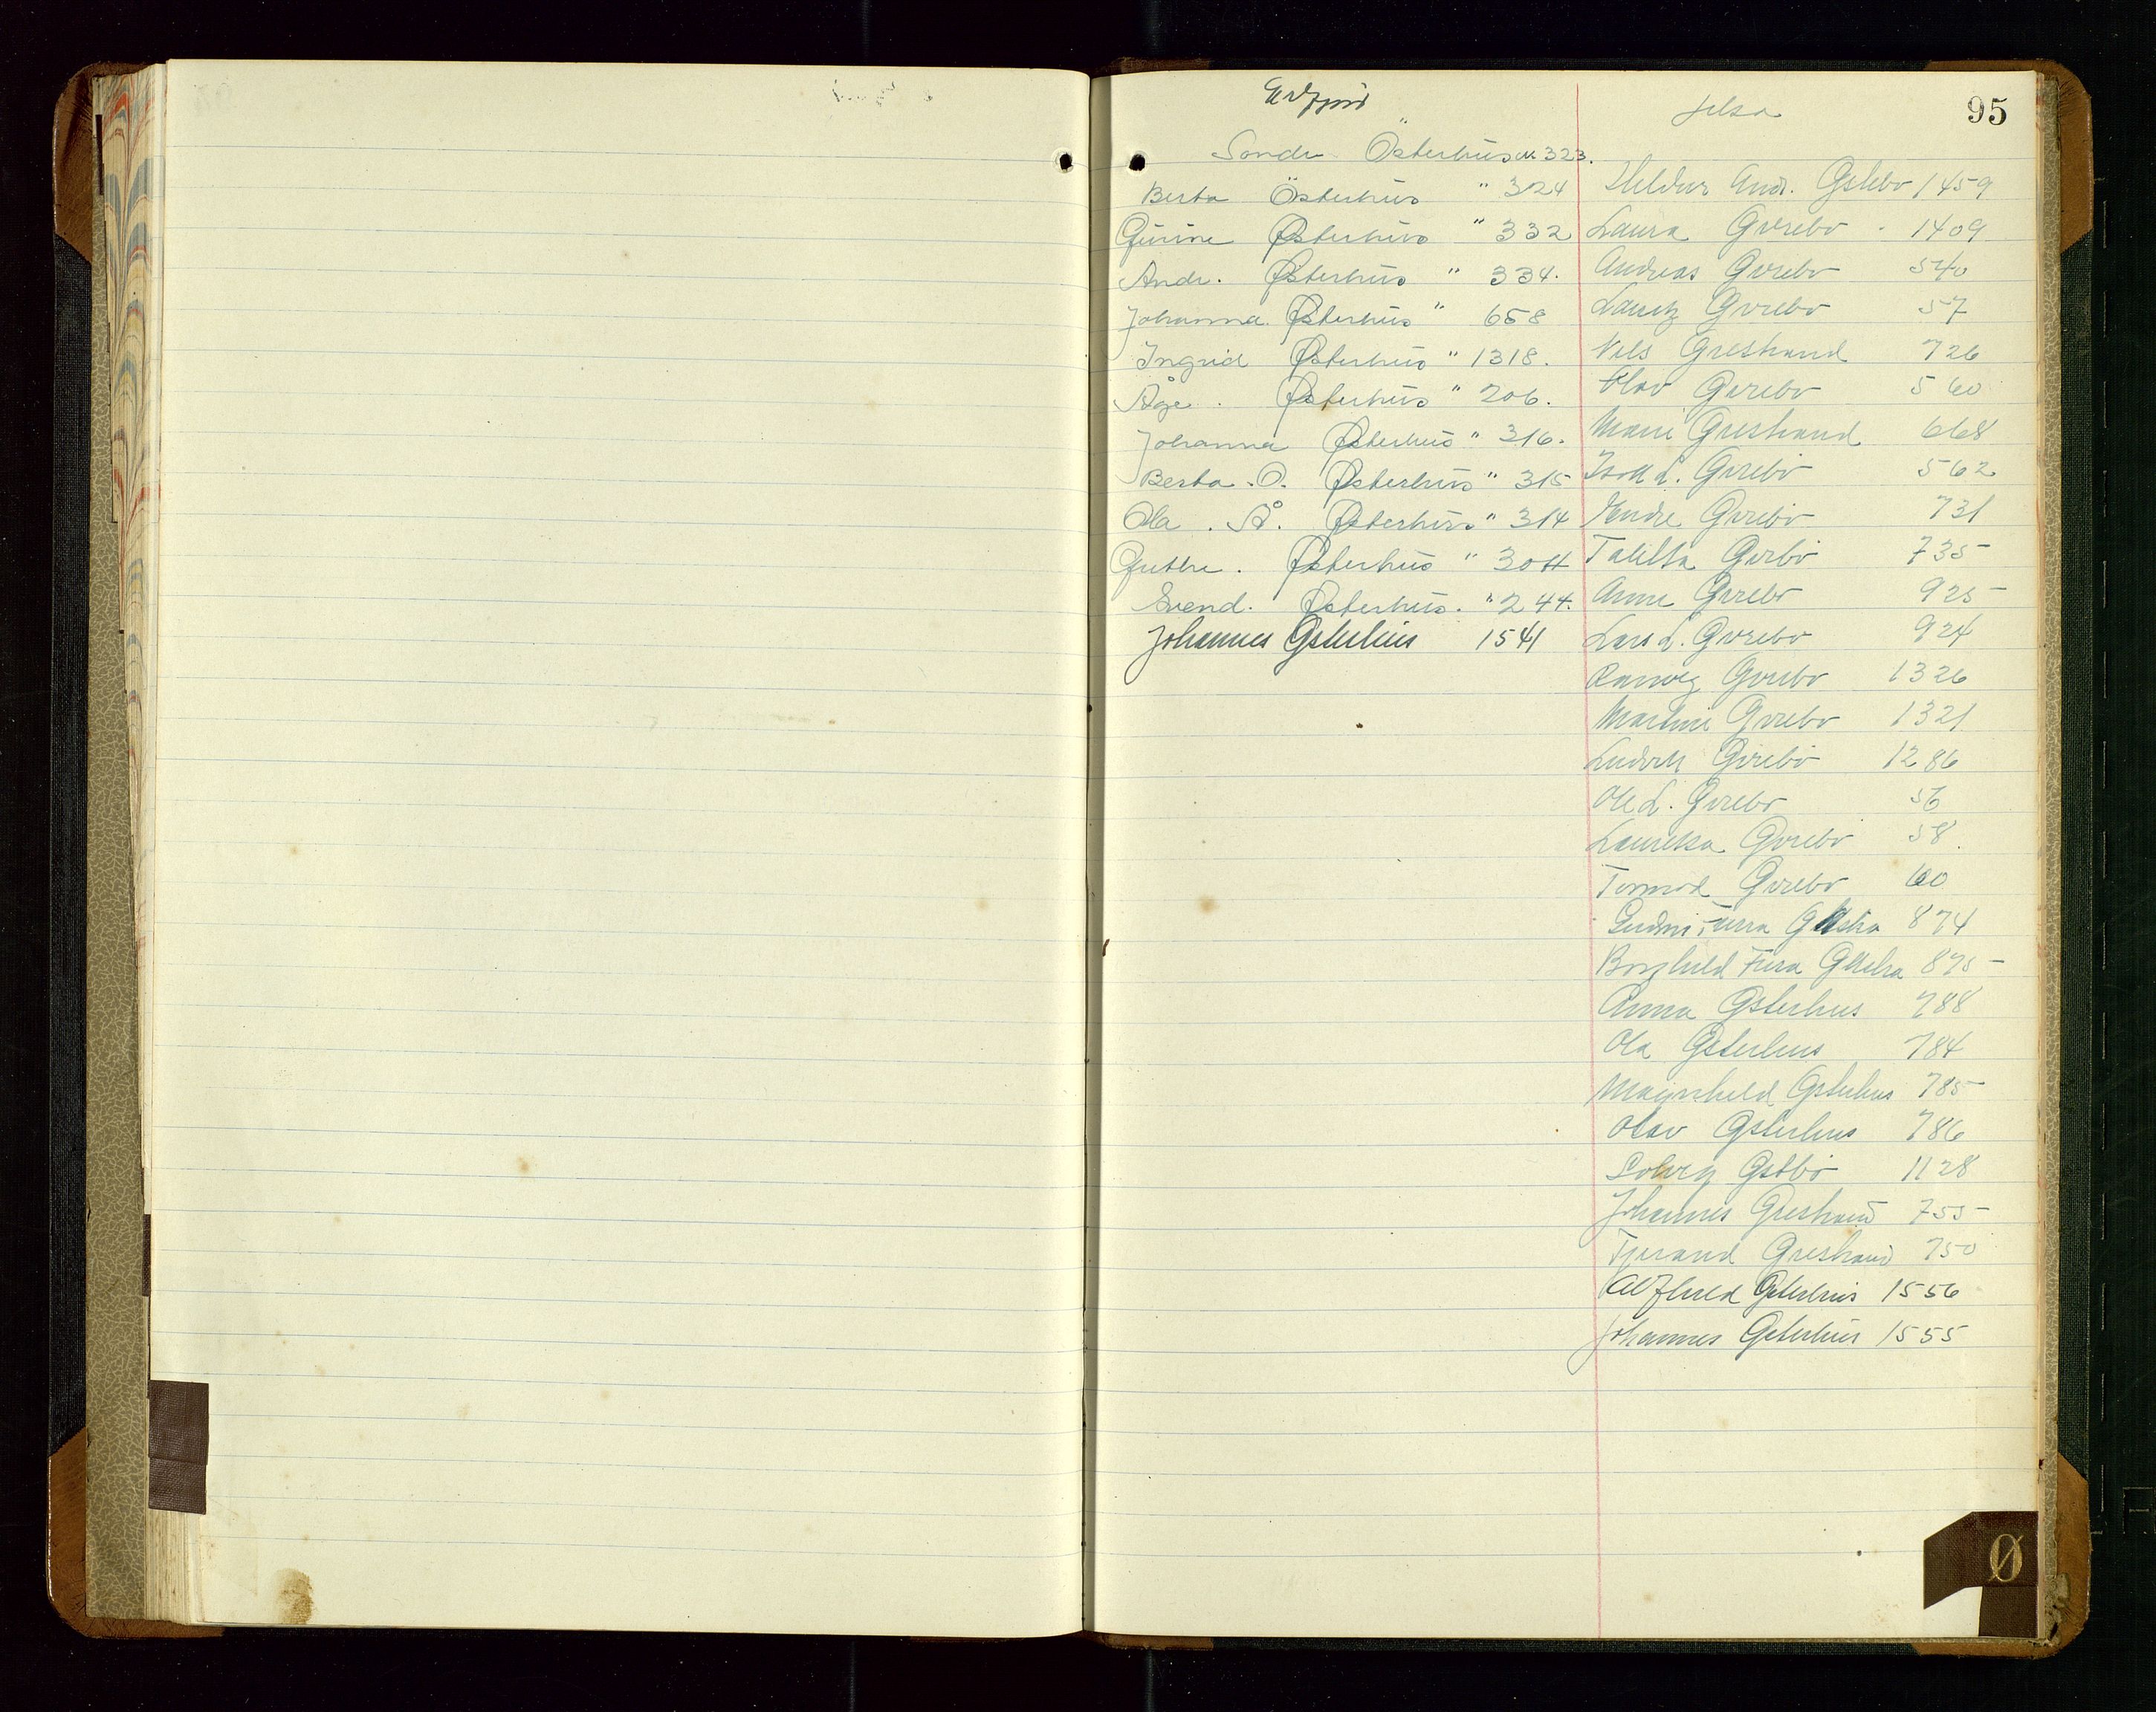 95
Erfjord
Sondr. Österhus № 323.
Berta Österhus " 324
Gurine Østerhus " 332
Andr. Østerhus " 334.
Johanna. Østerhus " 658
Ingrid Østerhus " 1318.
Åge. Østerhus " 206.
Johanna Østerhus " 316.
Berta. O. Østerhus " 315
Ola. Å. Østerhus " 314
Østerhus " 304
Svend. Østerhus. " 244.
Johannes Østerhus 1541
Jelsa
Hildur And. Østebø 1459
Laura Øvrebø - 1409
Andreas Øvrebø 540
Lauritz Øvrebø 57
Nels Ørestrand 726
Olav Øvrebø 560
Marie Ørestrand 668
L. Øvrebø 562
Endre Øvrebø 731
Talitta Øvrebø 735
Anne Øvrebø 925
Lars L. Øvrebø 924
Ranveig Øvrebø 1326
Martine Øvrebø 1321
Ludvik Øvrebø 1286
Ole L. Øvrebø 56
Lauritza Øvrebø 58.
Tormod Øvrebø 60
Gudni Fura 874
Borghild Fura 875
Anna Østerhus 788
Ola Østerhus 784
Magnhild Østerhus 785
Olav Østerhus 786
Solveig Østbø 1128
Johannes Ørestrand 755
Tjerand Ørestrand 750
Alfhild Østerhus 1556
Johannes Østerhus 1555
Ø